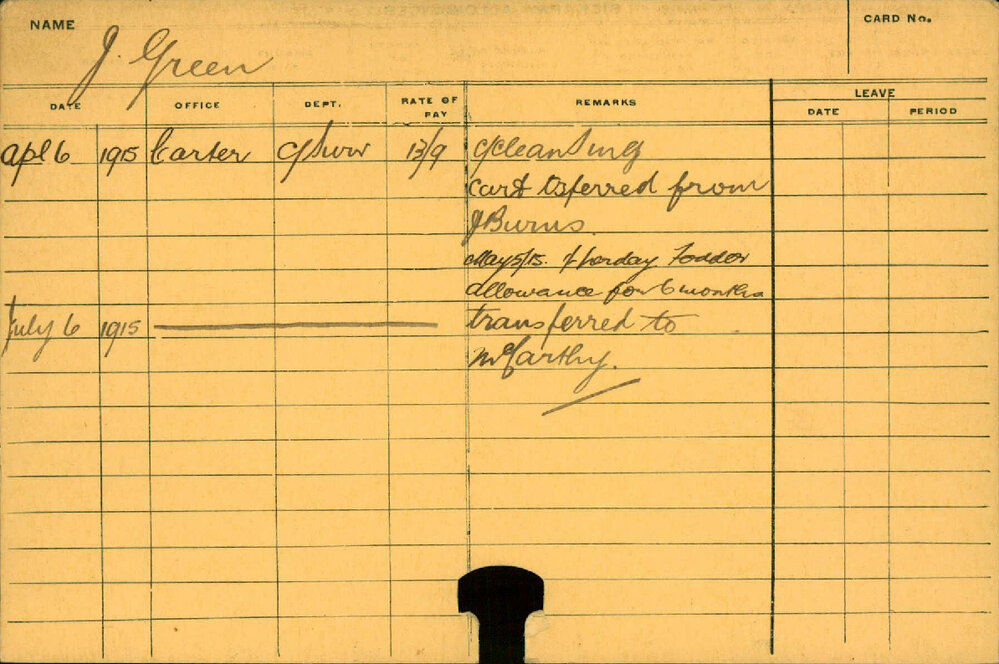 NAME
CARD No.
J. Green
DATE OFFICE DEPT. RATE OF PAY REMARKS LEAVE
DATE PERIOD
Apl 6 1915 Carter 13/9 Cleansing
Cart tsferred from
J Burns
May 5/15. 1/- per day Fodder
allowance for 6 months
July 6 1915 transferred to
McCarthy.